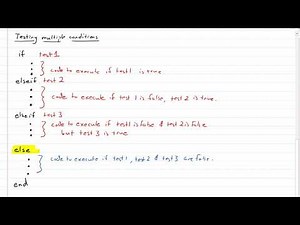 Testing multiple conditions
if test 1
code to execute if test 1 is true
elseif test 2
code to execute if test 1 is false, test 2 is true.
elseif test 3
code to execute if test 1 is false & test 2 is false
but test 3 is true
else
code to execute if test 1, test 2 & test 3 are false.
end